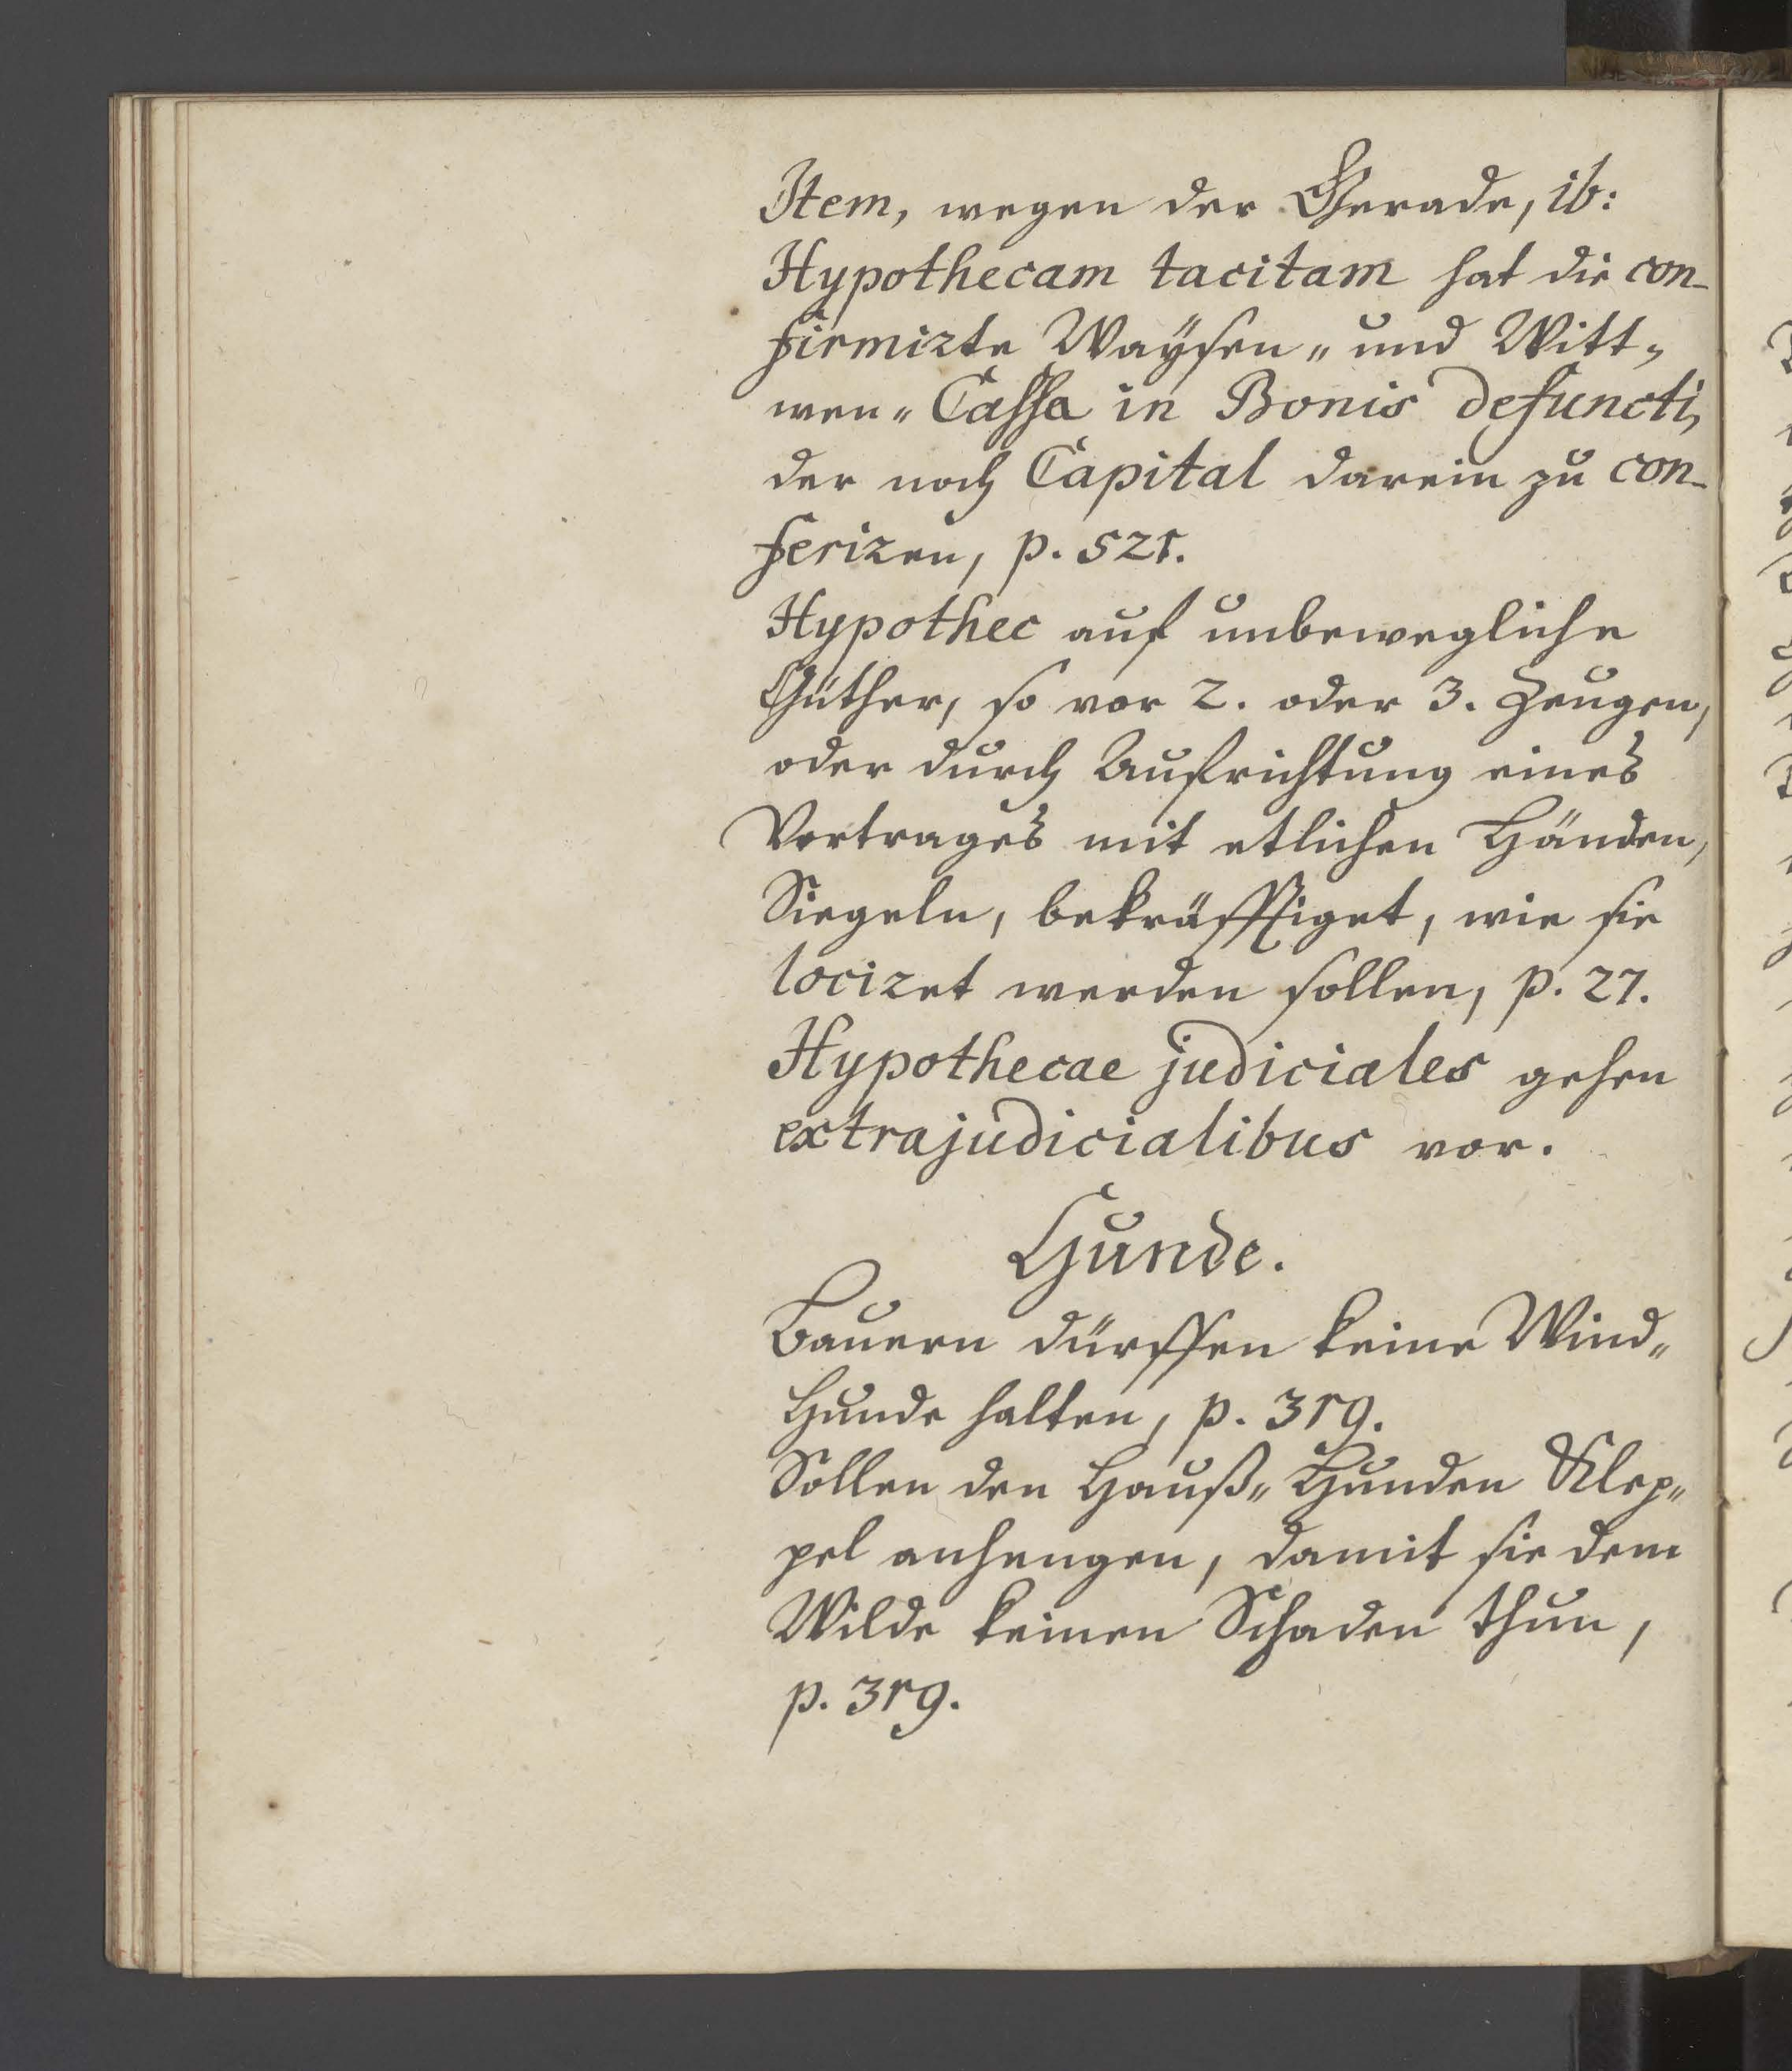 Item, wegen der Gerade, ib:
Hypothecam tacitam hat die con-
firmirte Waÿsen„ und Witt„
wen„ Cassa in Bonis defuncti,
der noch Capital darein zu con-
feriren, p. 521.
Hypothec auf unbewegliche
Güther, so vor 2. oder 3. Zeugen,
oder durch Aufrichtung eines
Vertrages mit etlichen Händen,
Siegeln, bekräfftiget, wie sie
lociret werden sollen, p. 27.
Hypothecae judiciales gehen
extrajudicialibus vor.
Hunde.
Bauern dürffen keine Wind„
Hunde halten, p. 319.
Sollen den Hauß„ Hunden Klep„
pel anhengen, damit sie dem
Wilde keinen Schaden thun,
p. 319.